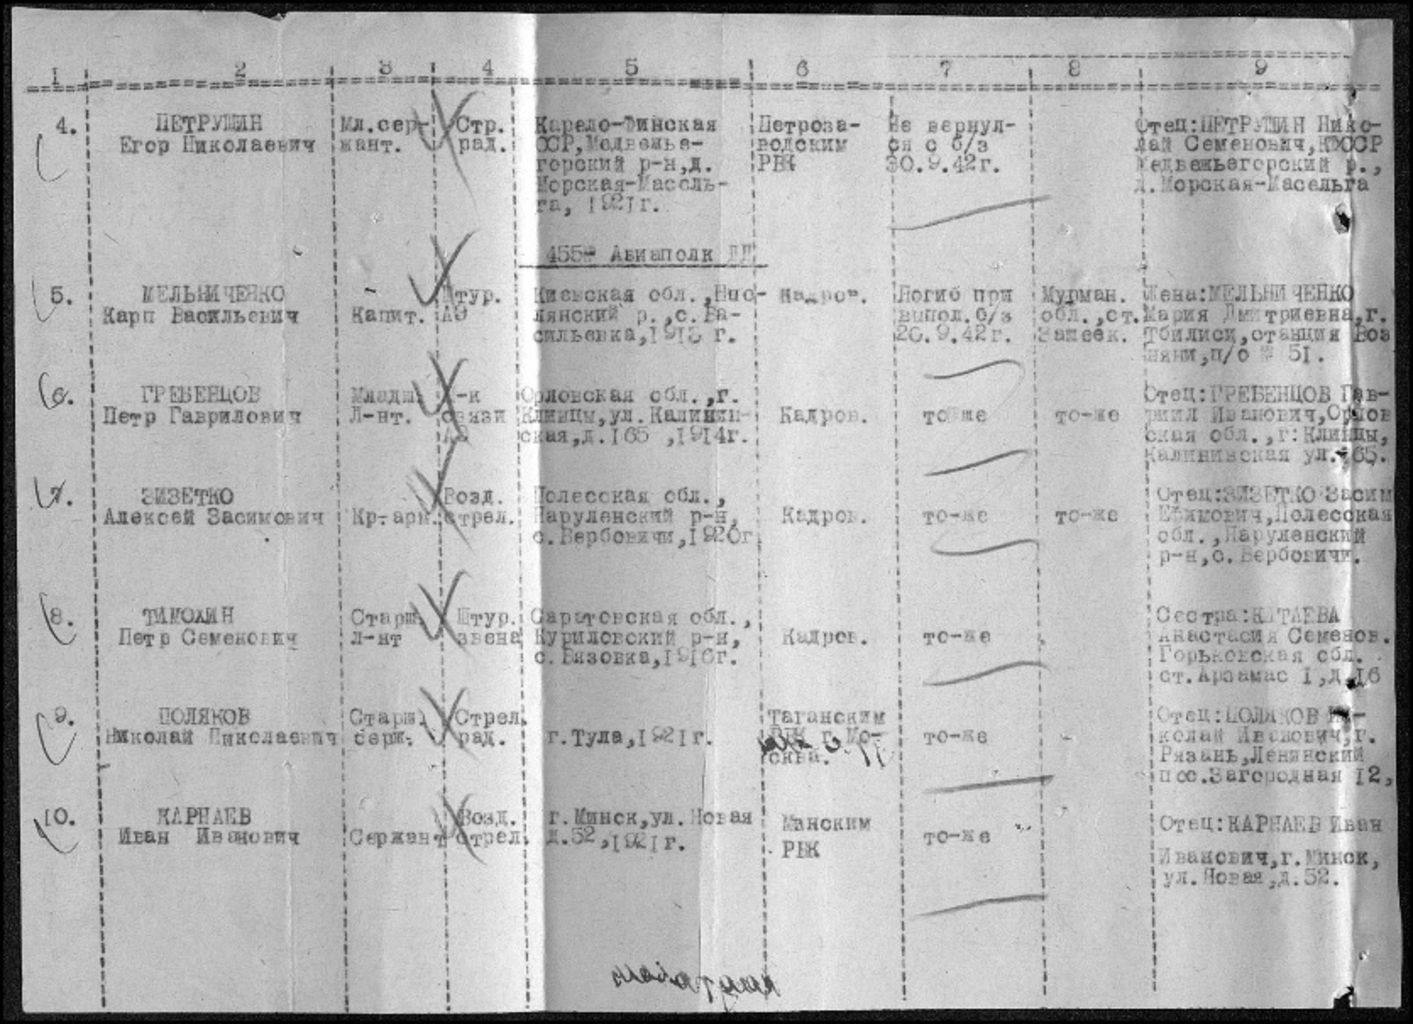 1 2 3 4 5 6 7 8 9
4. ПЕТРУШИН Мл.сер- Стр. Карело-Финская Петроза- Не вернул- Отец:ПЕТРУШИН Нико-
Егор Николаевич жант. рад. ССР,Медвежье- водским ся с б/з лай Семенович,КФССР
горский р-н,д. РВК 30.9.42г. Медвежьегорский р.,
Морская-Масель- д.Морская-Масельга
га, 1921г.
455 Авиаполк ДД
5. МЕЛЬНИЧЕНКО Штур. Киевская обл., Кадров. Погиб при Мурман. Жена:МЕЛЬНИЧЕНКО
Карп Васильевич Капит. АЭ лянский р.,с.Ва- выпол.б/з обл.,ст. Мария Дмитриевна,г.
сильевка, г. 20.9.42г. Зашеек. Тбилиси,станция
п/о № 51.
6. ГРЕБЕНЦОВ Младш. -к Орловская обл.,г. Отец:ГРЕБЕНЦОВ Гав-
Петр Гаврилович Л-нт. связи Клинцы,ул.Калинин- Кадров. то-же то-же риил Иванович,Орлов
АЭ ская,д.165 ,1914г. ская обл.,г.Клинцы,
Калининская ул. 165.
7. ЗИЗЕТКО Возд. Полесская обл., Отец:ЗИЗЕТКО Засим
Алексей Засимович Кр-арм. стрел. Наруленский р-н, Кадров. то-же то-же Ефимович,Полесская
с.Вербовичи,1920г. обл.,Наруленский
р-н,с.Вербовичи.
8. ТИМОХИН Старш. Штур. Саратовская обл., Сестра:КИТАЕВА
Петр Семенович л-нт звена Куриловский р-н, Кадров. то-же Анастасия Семенов.
с.Вязовка,1916г. Горьковская обл.
ст.Арзамас 1,д.16
9. ПОЛЯКОВ Старш. Стрел. Таганским Отец:ПОЛЯКОВ Ни-
Николай Николаевич серж. рад. г.Тула,1921г. РВК г.Мо- то-же колай Иванович,г.
сква. Рязань,Ленинский
пос.Загородная 12,
10. КАРНАЕВ Возд. г.Минск,ул.Новая Минским Отец:КАРНАЕВ Иван
Иван Иванович Сержант стрел. д.52,1921г. РВК то-же
Иванович,г.Минск,
ул.Новая,д.52.